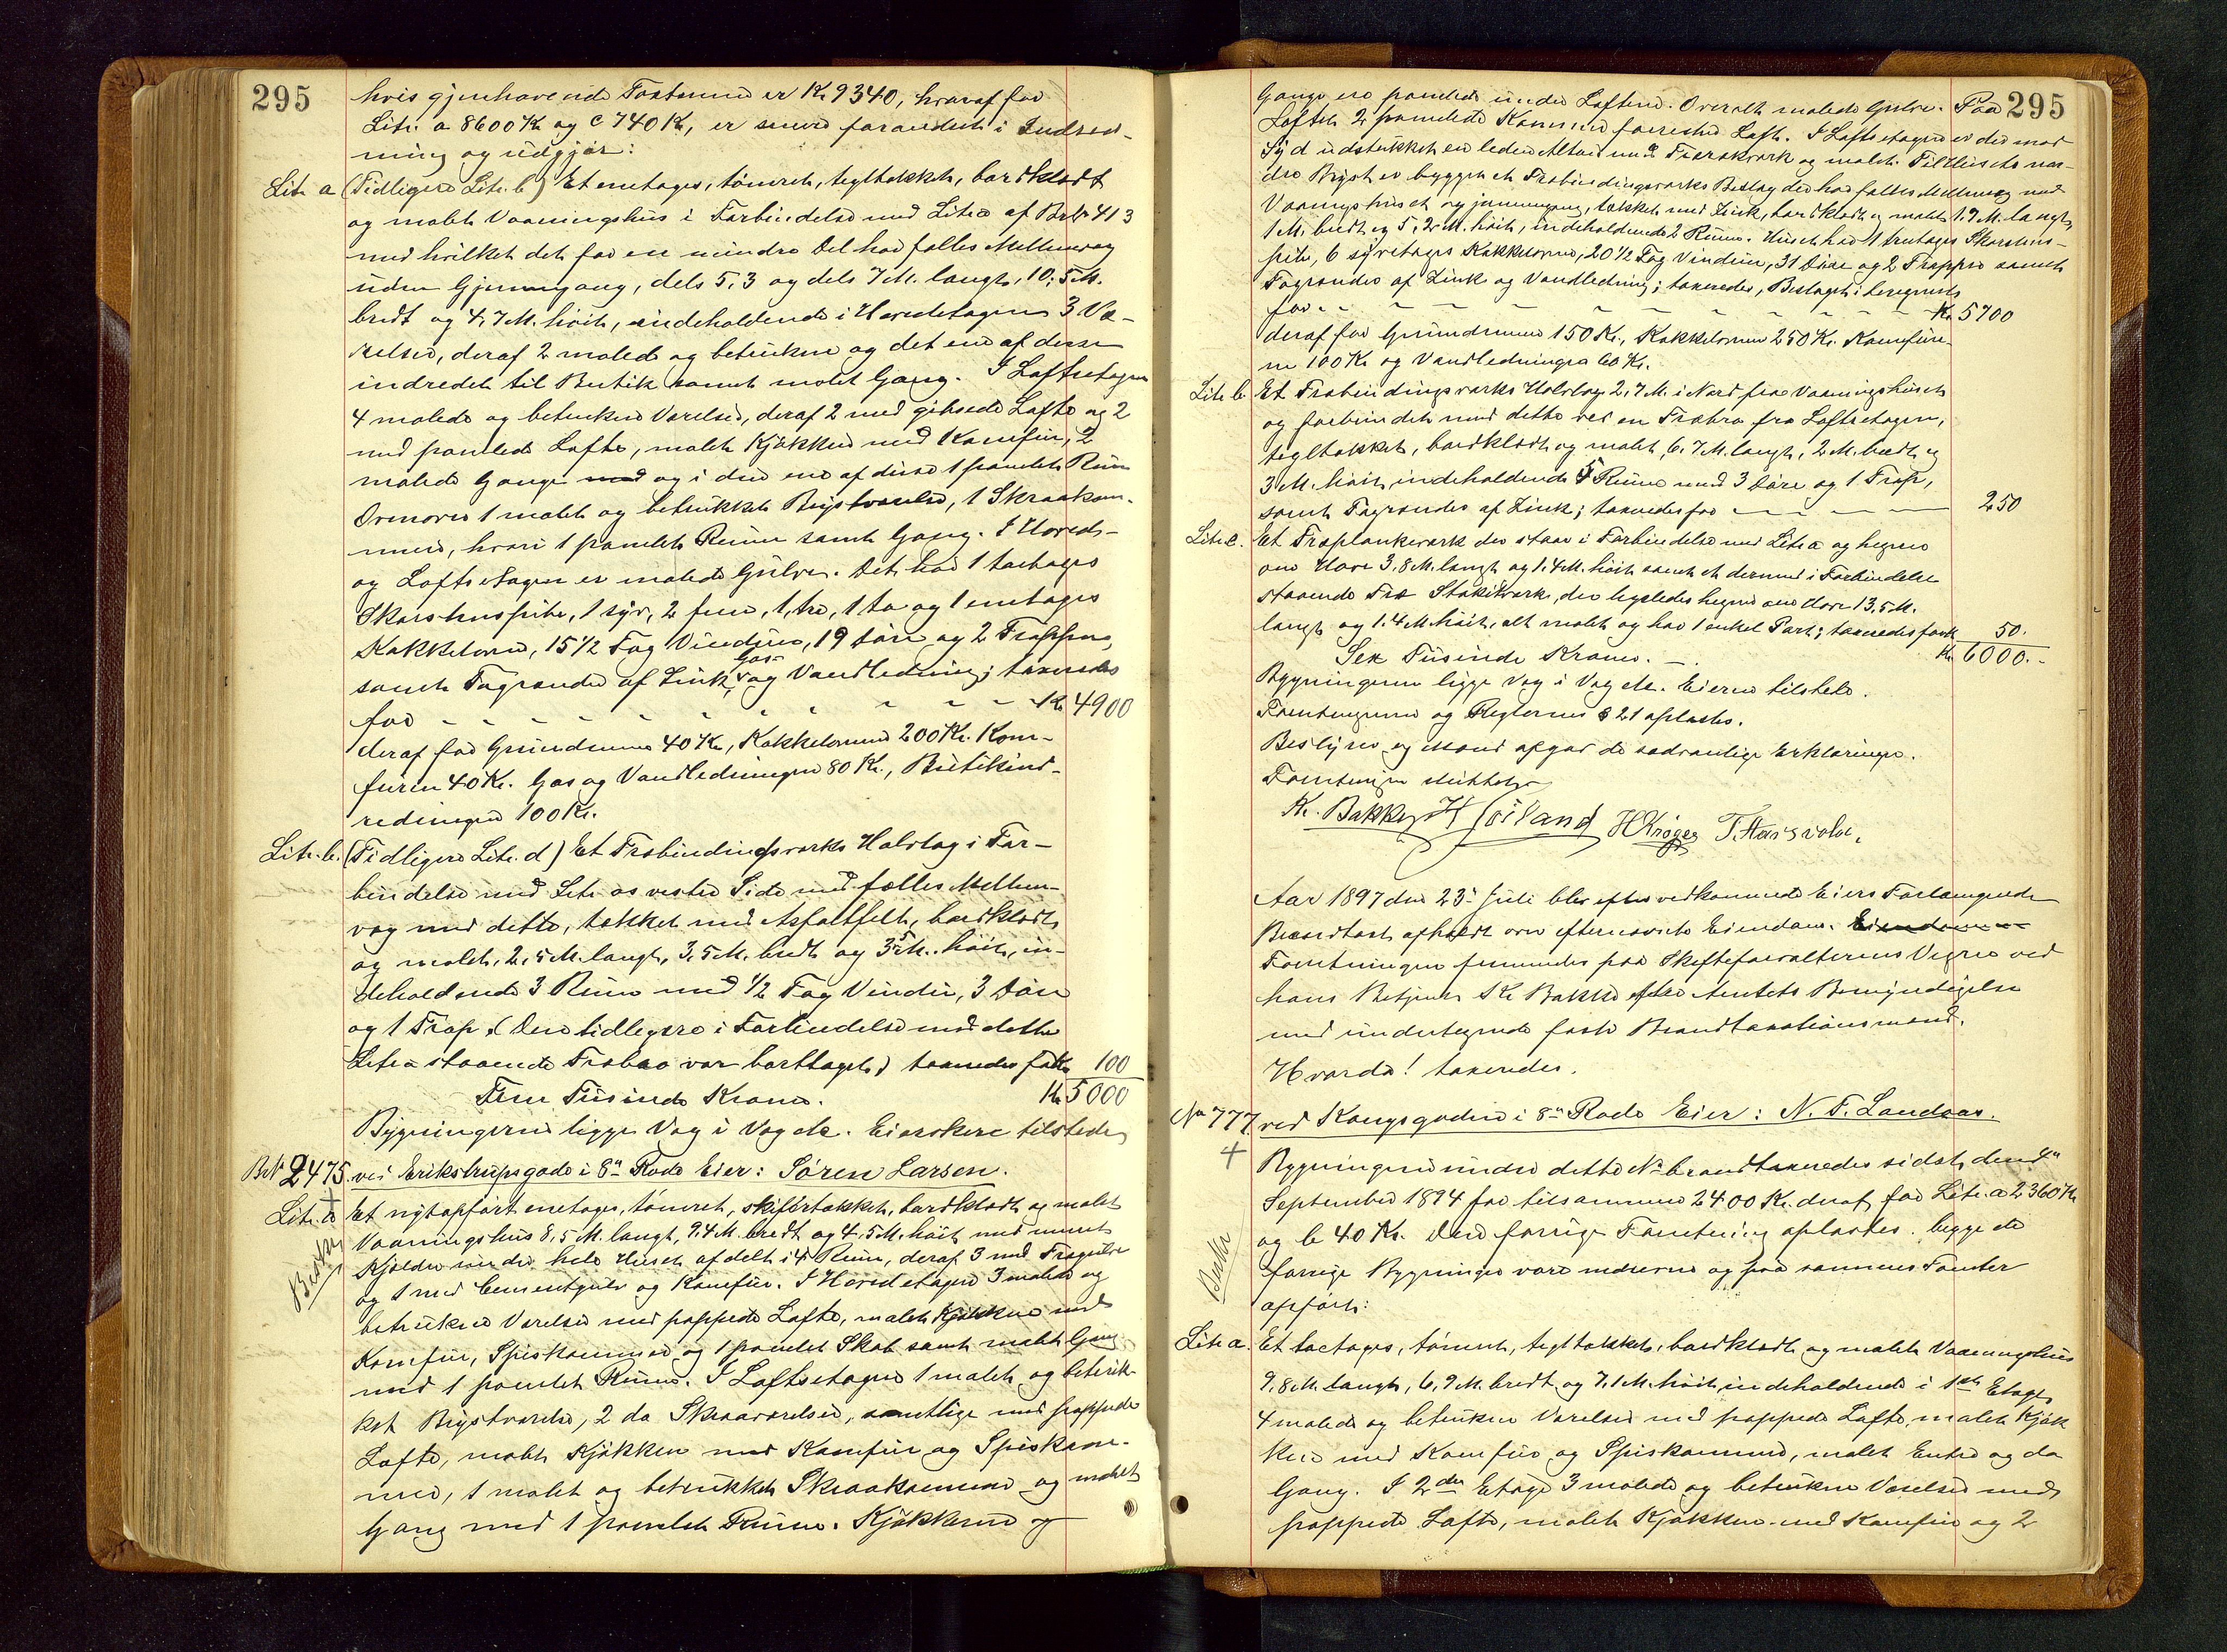 295
hvis gjenhavende Taxtsumme er Kr 9340, hvoraf for
Litr. a 8600 Kr og c 740 Kr, er senere forandret i Indred-
ning og udgjør:
Litr. a (Tidligere Litr. b) Et enetages, tømret, tegltækket, bordklædt
og malet Vaaningshus i Forbindelse med Litr. a af Br No 413
med hvilket det for en mindre Del har fælles Mellemvæg
uden Gjennemgang, dels 5,3 og dels 7 M. langt, 10,5 M.
bredt og 4,7 M. høit, indeholdende i Hovedetagen 3 Væ-
relser, deraf 2 malede og betrukne og det ene af disse
indredet til Butik samt malet Gang. I Loftsetagen
4 malede og betrukne Værelser, deraf 2 med gibsede Lofte og 2
med panelede Lofte, malet Kjøkken med Komfur, 2
malede Gange med og i den ene af disse 1 panelet Rum
Ovenover 1 malet og betrukket Brystværelse, 1 Skraakam-
mer, hvori 1 panelet Rum samt Gang. I Hoved-
og Loftsetagen er malede Gulve. Det har 1 toetages
Skorstenspibe, 1 syv, 2 fem, 1 tre, 1 to og 1 enetages
Kakkelovne, 15 1/2 Fag Vinduer, 19 Døre og 2 Trapper,
samt Tagrender af Zink, Gas- og Vandledning; taxeredes
for - - - - - - - - Kr 4900
deraf for Grundmuren 40 Kr, Kakkelovnene 200 Kr. Kom-
furen 40 Kr. Gas og Vandledningen 80 Kr., Butikind-
redningen 100 Kr.
Litr. b. (Tidligere Litr. d) Et Træbindingsværks Halvtag i For-
bindelse med Litr. as vestre Side med fælles Mellem-
væg med dette, tækket med Asfaltfilt, bordklædt
og malet, 2,5 M. langt, 3,5 M. bredt og 3,5 M. høit, in-
deholdende 3 Rum med 1/2 Fag Vindu, 3 Døre
og 1 Trap. (Den tidligere i Forbindelse med dette
Litra staaende Træbro var borttaget) taxeredes for Kr 100
Fem Tusinde Kroner. Kr 5000
Bygningerne ligge Væg i Væg etc. Eierskere tilstede
Br No 2475 ved Erikstrupsgade i 8de Rode Eier: Søren Larsen.
Litr. a Et nytopført enetages, tømret, skifertækket, bordklædt og malet
Vaaningshus 8,5 M. langt, 9,4 M. bredt og 4,5 M. høit med muret
Kjælder under hele Huset afdelt i 4 Rum, deraf 3 med Trægulve
og 1 med Cementgulv og Komfur. I Hovedetagen 3 malede og
betrukne Værelser med pappede Lofte, malet Kjøkken med
Komfur, Spiskammer og 1 panelet Skab samt malet Gang
med 1 panelet Rum. I Loftsetagen 1 malet og betruk-
ket Brystværelse, 2 do Skraaværelser, samtlige med pappede
Lofte, malet Kjøkken med Komfur og Spiskam-
mer, 1 malet og betrukket Skraakammer og malet
Gang med 1 panelet Rum. Kjøkkerne og
295
Gange ere panelede under Loftene. Overalt malede Gulve. Paa
Loftet 2 panelede Kammer forresten Loft. I Loftsetagen er der mod
Syd udstukket en liden Altan med Træværk og malet. Til Husets nor-
dre Bryst er bygget et Træbindingsværks Beslag der har fælles Mellemvæg med
Vaaningshuset og gjennemgang, tækket med Zink, bordklædt og malet 1,9 M. langt,
1 M. bredt og 5,2 M. høit, indeholdende 2 Rum. Huset har 1 treetages Skorstens-
pibe, 6 syvetages Kakkelovne, 20 1/2 Fag Vinduer, 31 Døre og 2 Trapper samt
Tagrender af Zink og Vandledning; taxeredes, Beslaget iberegnet
for - - - - - - - - - - Kr 5700
deraf for Grundmuren 150 Kr., Kakkelovnene 250 Kr. Komfure-
ne 100 Kr og Vandledningen 60 Kr.
Litr. b. Et Træbindingsværks Halvtag 2,7 M. i Nord fra Vaaningshuset
og forbundet med dette ved en Træbro fra Loftsetagen,
tegltækket, bordklædt og malet, 6,7 M. langt, 2 M. bredt og
3 M. høit, indeholdende 5 Rum med 3 Døre og 1 Trap,
samt Tagrender af Zink; taxeredes for - - - - 250
Litr. c. Et Træplankeværk der staar i Forbindelse med Litr. a og hegner
om Have 3,8 M. langt og 1,4 M. høit samt et dermed i Forbindelse
staaende Træ Stakitværk, der ligeledes hegner om Have 13,5 M.
langt og 1,4 M. høit, alt malet og har 1 enkel Port; taxeredes for Kr 50.
Sex Tusinde Kroner. - Kr 6000.-
Bygningerne ligge Væg i Væg etc. Eieren tilstede.
Taxtningerne og Reglernes § 21 oplæstes.
Bestyrer og Mænd afgav de sædvanlige Erklæringer.
Taxtningen sluttet
Kr. Bakke H Høiland H Krøger T. Hausvold.
Aar 1897 den 23de Juli blev efter vedkommende Eiers Forlangende
Brandtaxt afholdt over efternævnte Eiendom.
Taxtningen fremmedes paa Skifteforvalterens Vegne ved
hans Betjent Kr Bakke efter Amtets Bemyndigelse
med undertegnede faste Brandtaxationsmænd.
Hvorda! taxeredes.
No 777 ved Kongsgaden i 8de Rode Eier: N. T. Landaas.
Bygningerne under dette No brandtaxeredes sidst den 4de
September 1894 for tilsammen 2400 Kr. deraf for Litr. a 2360 Kr
og b 40 Kr. Den forrige Taxtning oplæstes. begge de
forrige Bygninger vare nedrevne og paa sammes Tomter
opført:
Litr. a. Et toetages, tømret, tegltækket, bordklædt og malet Vaaningshus
9,8 M. langt, 6,9 M. bredt og 7,1 M. høit, indeholdende i 1ste Etage
4 malede og betrukne Værelser med pappede Lofte, malet Kjøk
ken med Komfur og Spiskammer, malet Entre og do
Gang. I 2den Etage 3 malede og betrukne Værelser med
pappede Lofte, malet Kjøkken med Komfur og 2